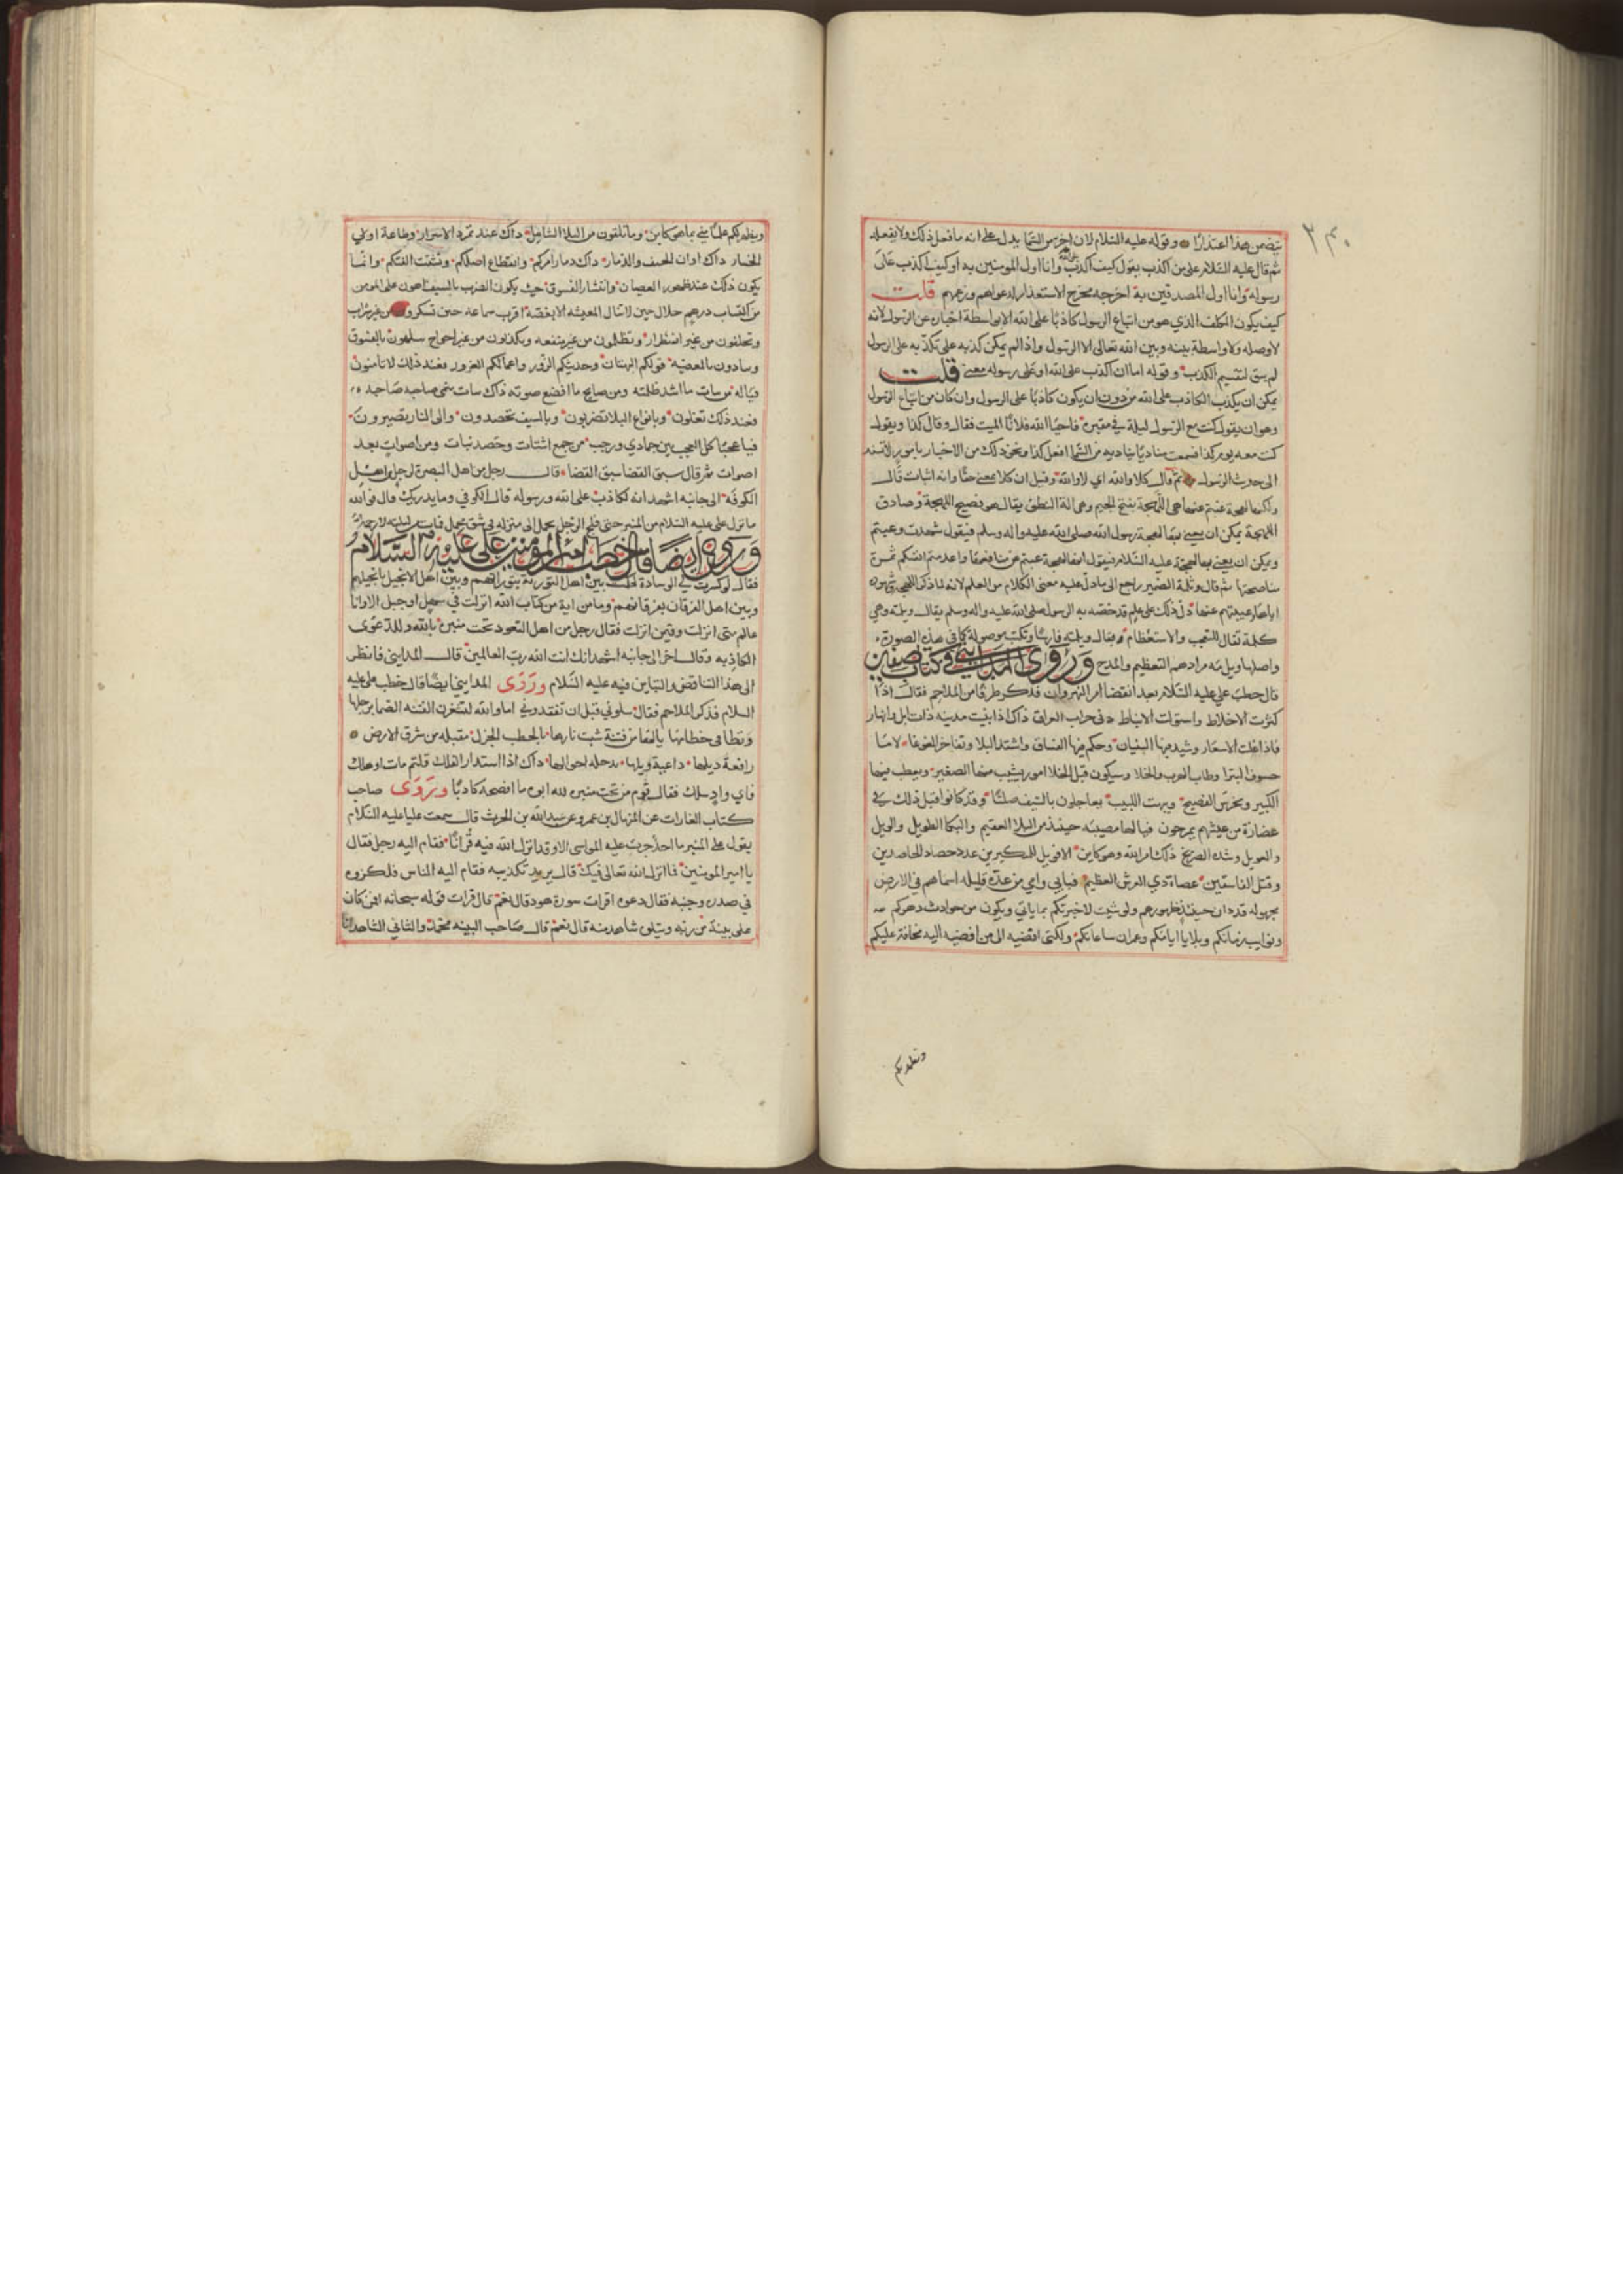 ٣٤٠
يتضمن هذا اعتذارًا وقوله عليه السلام لان اخر من السما يدل على انه ما فعل ذلك ولا يفعله
ثم قال عليه السلام على من اكذب يقول كيف اكذب على الله وانا اول المومنين به او كيف اكذب على
رسوله وانا اول المصدقين به اخرجه مخرج الاستبعاد لدعواهم وزعمهم قلت
كيف يكون المكلف الذي هو من اتباع الرسول كاذبًا على الله الا بواسطة اخباره عن الرسول لانه
لا وصله ولا واسطة بينه وبين الله تعالى الا الرسول واذا لم يمكن كذبه على الله الا بكذبه على الرسول
لم يبق لتقسيم الكذب وقوله اما ان اكذب على الله او على رسوله معنى قلت
يمكن ان يكذب الكاذب على الله من دون ان يكون كاذبًا على الرسول وان كان من اتباع الرسول
وهو ان يقول كنت مع الرسول ليلة في مقبرة فاحيا الله فلانًا الميت فقال وقال كذا ويقول
كنت معه يوم كذا فسمعت مناديًا يناديه من السما افعل كذا ونحو ذلك من الاخبار بامور لا تسند
الى حديث الرسول ثم قال كلا والله اي لا والله وقيل ان كلا بمعنى حقًا وانه اثبات قال
ولكنها لهجة غبتم عنها هي اللهجة بفتح الجيم وهي الة النطق يقال هو فصيح اللهجة وصادق
اللهجة يمكن ان يعني بها لهجة رسول الله صلى الله عليه واله وسلم فيقول شهدت وغبتم
ويمكن ان يعني بها لهجته عليه السلام فيقول انها لهجة غبتم عن منافعها واعدمتم انفسكم ثمرة
مناصحتها ثم قال ويلمه الضمير راجع الى ما دل عليه معنى الكلام من العلم لانه لما ذكر اللهجة وشهوده
اياها وغيبتهم عنها دل ذلك على علم قد خصه به الرسول صلى الله عليه واله وسلم يقال ويلمه وهي
كلمة تقال للتعجب والاستعظام ويقال ويلمه فارسًا وتكتب موصوله كما في هذه الصورة
واصلها ويل لامه مرادهم التعظيم والمدح وروى المدايني في كتاب صفين
قال خطب علي عليه السلام بعد انقضا امر النهروان فذكر طرفًا من الملاحم فقال اذا
كثرت الاخلاط واستولت الانباط دنى خراب العراق ذاك اذا بنيت مدينه ذات اثل وانهار
فاذا غلت الاسعار وشيد فيها البنيان وحكم فيها الفساق واشتد البلا وتفاخر الغوغا
خسوف البيدا وطاب الهرب والجلا وسيكون قبل الجلا امور يشيب منها الصغير ويعطب منها
الكبير ويخرس الفصيح ويبهت اللبيب يعاجلون بالسيف صلتًا وقد كانوا قبل ذلك في
غضارة من عيشهم يمرحون فيا لها مصيبه حينئذ من البلا العقيم والبكا الطويل والويل
والعويل وشده الصريخ ذلك امر الله وهو كاين
وقتل الفاسقين عصاة ذي العرش العظيم فبابي وامي من عدة قليله اسماهم في الارض
مجهوله قد دان حينئذ ظهورهم ولو شيت لاخبرتكم بما ياتي ويكون من حوادث دهركم
ونوايب زمانكم وبلايا ايامكم وغمرات ساعاتكم ولكني افضيه الى من افضيه اليه مخافة عليكم
ونظرًا لكم
ونظرًا لكم علمًا مني بما هو كاين وما تلقون من البلا الشامل ذاك عند تمرد الاشرار وطاعة اولي
الخسار ذاك اوان الحتف والدمار ذاك دبار امركم وانقطاع اصلكم وتشتت الفتكم وانما
يكون ذلك عند ظهور العصيان وانتشار الفسوق حيث يكون الضرب بالسيف اهون على المومن
من اكتساب درهم حلال حين لا تنال المعيشه الا بمعصية حين تسكرون من غير شراب
وتحلفون من غير اضطرار وتظلمون من غير منفعه وتكذبون من غير احراج بالفسوق
وتبادرون بالمعصية قولكم البهتان وحديثكم الزور واعمالكم الغرور فعند ذلك لا تامنون
البيات فيا له من بيات ما اشد ظلمته ومن صايح ما افضع صوته ذاك بيات صاحبه
فعند ذلك تقتلون وبانواع البلا تضربون وبالسيف تحصدون والى النار تصيرون
فيا عجبًا كل العجب بين جمادي ورجب من جمع اشتات وحصد نبات ومن اصوات بعد
اصوات ثم قال سبق القضا سبق القضا قال رجل من اهل البصرة لرجل من اهل
الكوفه الى جانبه اشهد انه كاذب على الله ورسوله قال الكوفي وما يدريك قال فوالله
ما نزل علي عليه السلام من المنبر حتى فلج الرجل فحمل الى منزله في شق محمل فمات من ليلته
وروى ايضًا قال خطب امير المومنين علي عليه السلام
فقال لو كسرت لي الوسادة لحكمت بين اهل التورية بتوراتهم وبين اهل الانجيل بانجيلهم
وبين اهل الفرقان بفرقانهم وما من اية من كتاب الله انزلت في سهل او جبل الا وانا
عالم متى انزلت وفيمن انزلت فقال رجل من اهل القعود تحت منبره يا لله وللدعوى
الكاذبه وقال اخر الى جانبه اشهد انك انت الله رب العالمين قال المدايني فانظر
الى هذا التناقض والتباين فيه عليه السلام وروى المدايني ايضًا قال خطب علي عليه
السلام فذكر الملاحم فقال سلوني قبل ان تفقدوني اما والله لتشغرن الفتنه الصما برجلها
وتطا في خطامها يا لها من فتنة شبت نارها بالحطب الجزل مقبله من شرق الارض
رافعة ذيلها داعية ويلها بدجله او حولها ذاك اذا استدار الفلك وقلتم مات او هلك
باي واد سلك فقال قوم من تحت منبره لله ابوه ما افصحه كاذبًا وروى صاحب
كتاب الغارات عن المنهال بن عمرو عن عبد الله بن الحرث قال سمعت عليًا عليه السلام
يقول على المنبر ما احد جرت عليه المواسي الا وقد انزل الله فيه قرانًا فقام اليه رجل فقال
يا امير المومنين فما انزل الله تعالى فيك قال يريد تكذيبه فقام اليه الناس فلكزوه
في صدره وجنبه فقال دعوه اقرات سورة هود قال نعم قال قرات قوله سبحانه افمن كان
على بينة من ربه ويتلوه شاهد منه قال نعم قال صاحب البينه محمد والتالي الشاهد انا